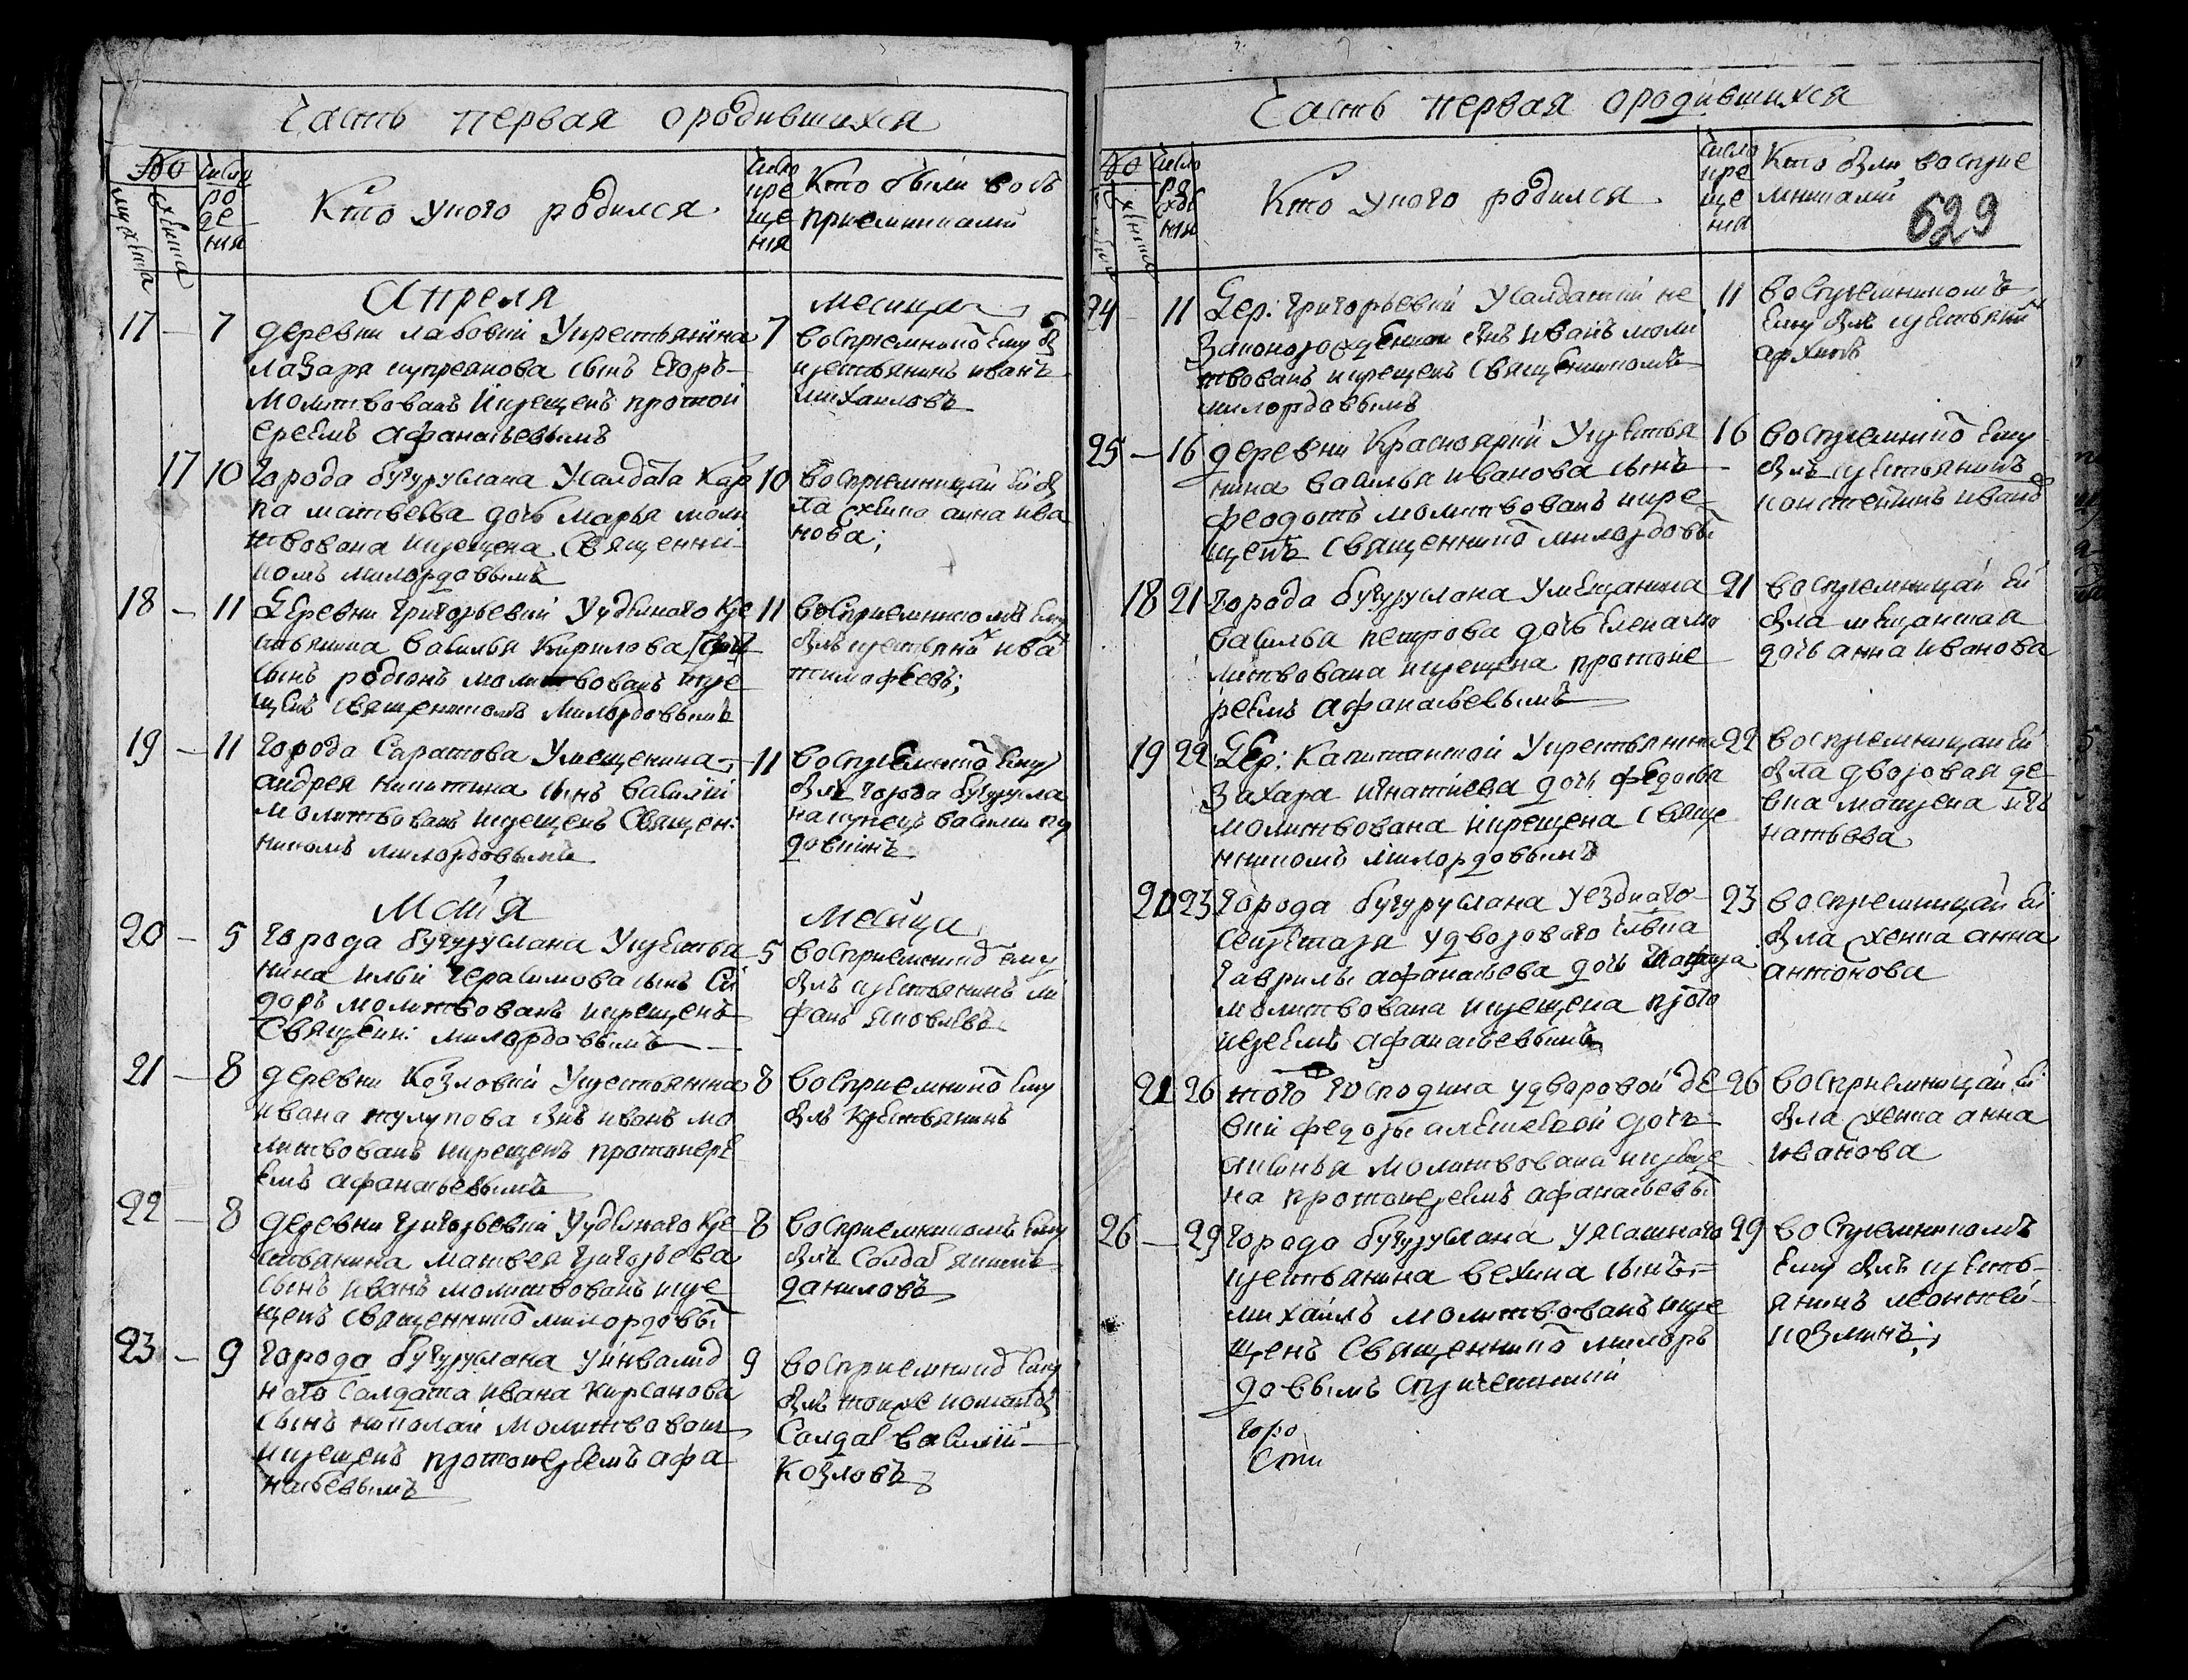 Часть первая ородившихся
№ Число ро де ния
мужеска женска
Кто укого родился
Число кре ще ния
Кто были вось
приемниками
Апреля месяца
17 7 деревни лабовки Укрестьянина 7
лазаря купреянова сынъ Егоръ
молитвованъ икрещенъ протои
ереемъ афанасьевымъ
воспрiемнико Ему бы
крестьянинъ иванъ
михаиловъ
17 10 города бугуруслана Усалдата Кар 10
па матвеева дочь марья моли
твована икрещена Священни
комъ милордовымъ
воспрiемницаи Ей бы
ла женка анна ива
нова;
18 11 Деревни григорьевки Уудельного кре 11
стьянина василья Кирилова
сынъ родионъ молитвованъ икре
щенъ священникомъ милордовымъ
восприемникомъ Ему
былъ крестьяни ива
тимофеевъ;
19 11 города Саратова Умещенина 11
андрея никитина сынъ василий
молитвованъ икрещенъ Священ:
никомъ милордовымъ
воспрiемнико Ему
былъ города бугурусла
на купецъ василий
Маiя месяца
20 5 города бугуруслана Укрестья 5
нина ильи герасимова сынъ Си
доръ молитвованъ икрещенъ
Священ: милордовымъ
восприемнико Ему
былъ крестьянинъ
яковлевъ
21 8 деревни Козловки Укрестьянина 8
ивана тулупова сынъ иванъ мо
литвованъ икрещенъ протоиере
емъ афанасьевымъ
восприемнико Ему
былъ крестьянинъ
22 8 деревни григорьевки Уудельного кре 8
стьянина матвея григорьева
сынъ иванъ молитвованъ икре
щенъ священнико милордовы
восприемникомъ Ему
былъ Солда
даниловъ
23 9 города бугуруслана уинвалид 9
ного Салдата ивана Кирсанова
сынъ николай молитвован
икрещенъ протоиереемъ афа
насьевымъ
восприемнико Ему
былъ тоиже команды
Салда василий
Козловъ
Часть первая ородившихся
№ Число ро жде ния
Кто укого родился
Число кре ще ния
Кто были воспрiе
мниками
629
24 11 Дер: григорьевки Усалдатки не 11
законорожденои сынъ иванъ моли
твованъ икрещенъ Священникомъ
милордовымъ
воспрiемникомъ
Ему былъ крестьяни
25 16 деревни Красноярки Укрестья 16
нина василья иванова сынъ
феодотъ молитвованъ икре
щенъ священнико милордовы
воспрiемнико Ему
былъ крестьянинъ
константинъ ивано
18 21 города бугуруслана Умещанина 21
василья петрова дочь Елена мо
литвована икрещена протоие
реемъ афанасьевымъ
воспрiемницаи Ей
была мещанская
дочь анна иванова
19 22 Дер: Капитанкой Укрестьянина 22
захара игнатиева дочь федосья
молитвована икрещена свяще
нникомъ милордовымъ
воспрiемницаи Ей
была дворовая де
вка матрена игн
натьева
20 23 города бугуруслана уезднаго 23
секретаря удворового
гаврилы афанасьева дочь
молитвована икрещена прото
иереемъ афанасьевымъ
воспрiемницаи Ей
была женка анна
антонова
21 26 того господина удворовой де 26
вки федоры алексеевой дочь
аксинья молитвована икреще
на протоиереемъ афанасьевы
восприемницаи Ей
была женка анна
иванова
26 29 города бугуруслана уясашного 29
крестьянина вехина сынъ
михаилъ молитвованъ икре
щенъ Священнико милор
довымъ спричетники
воспрiемникомъ
Ему былъ кресть
янинъ леонтей
козминъ;
горо